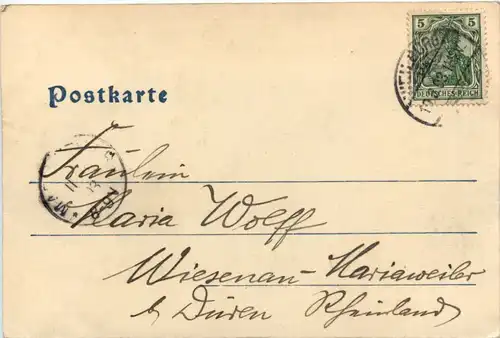 5 5
DEUTSCHES REICH
Postkarte
Fräulein
Maria Wolff
Wiesenau-Mariaweiler
b. Düren Rheinland